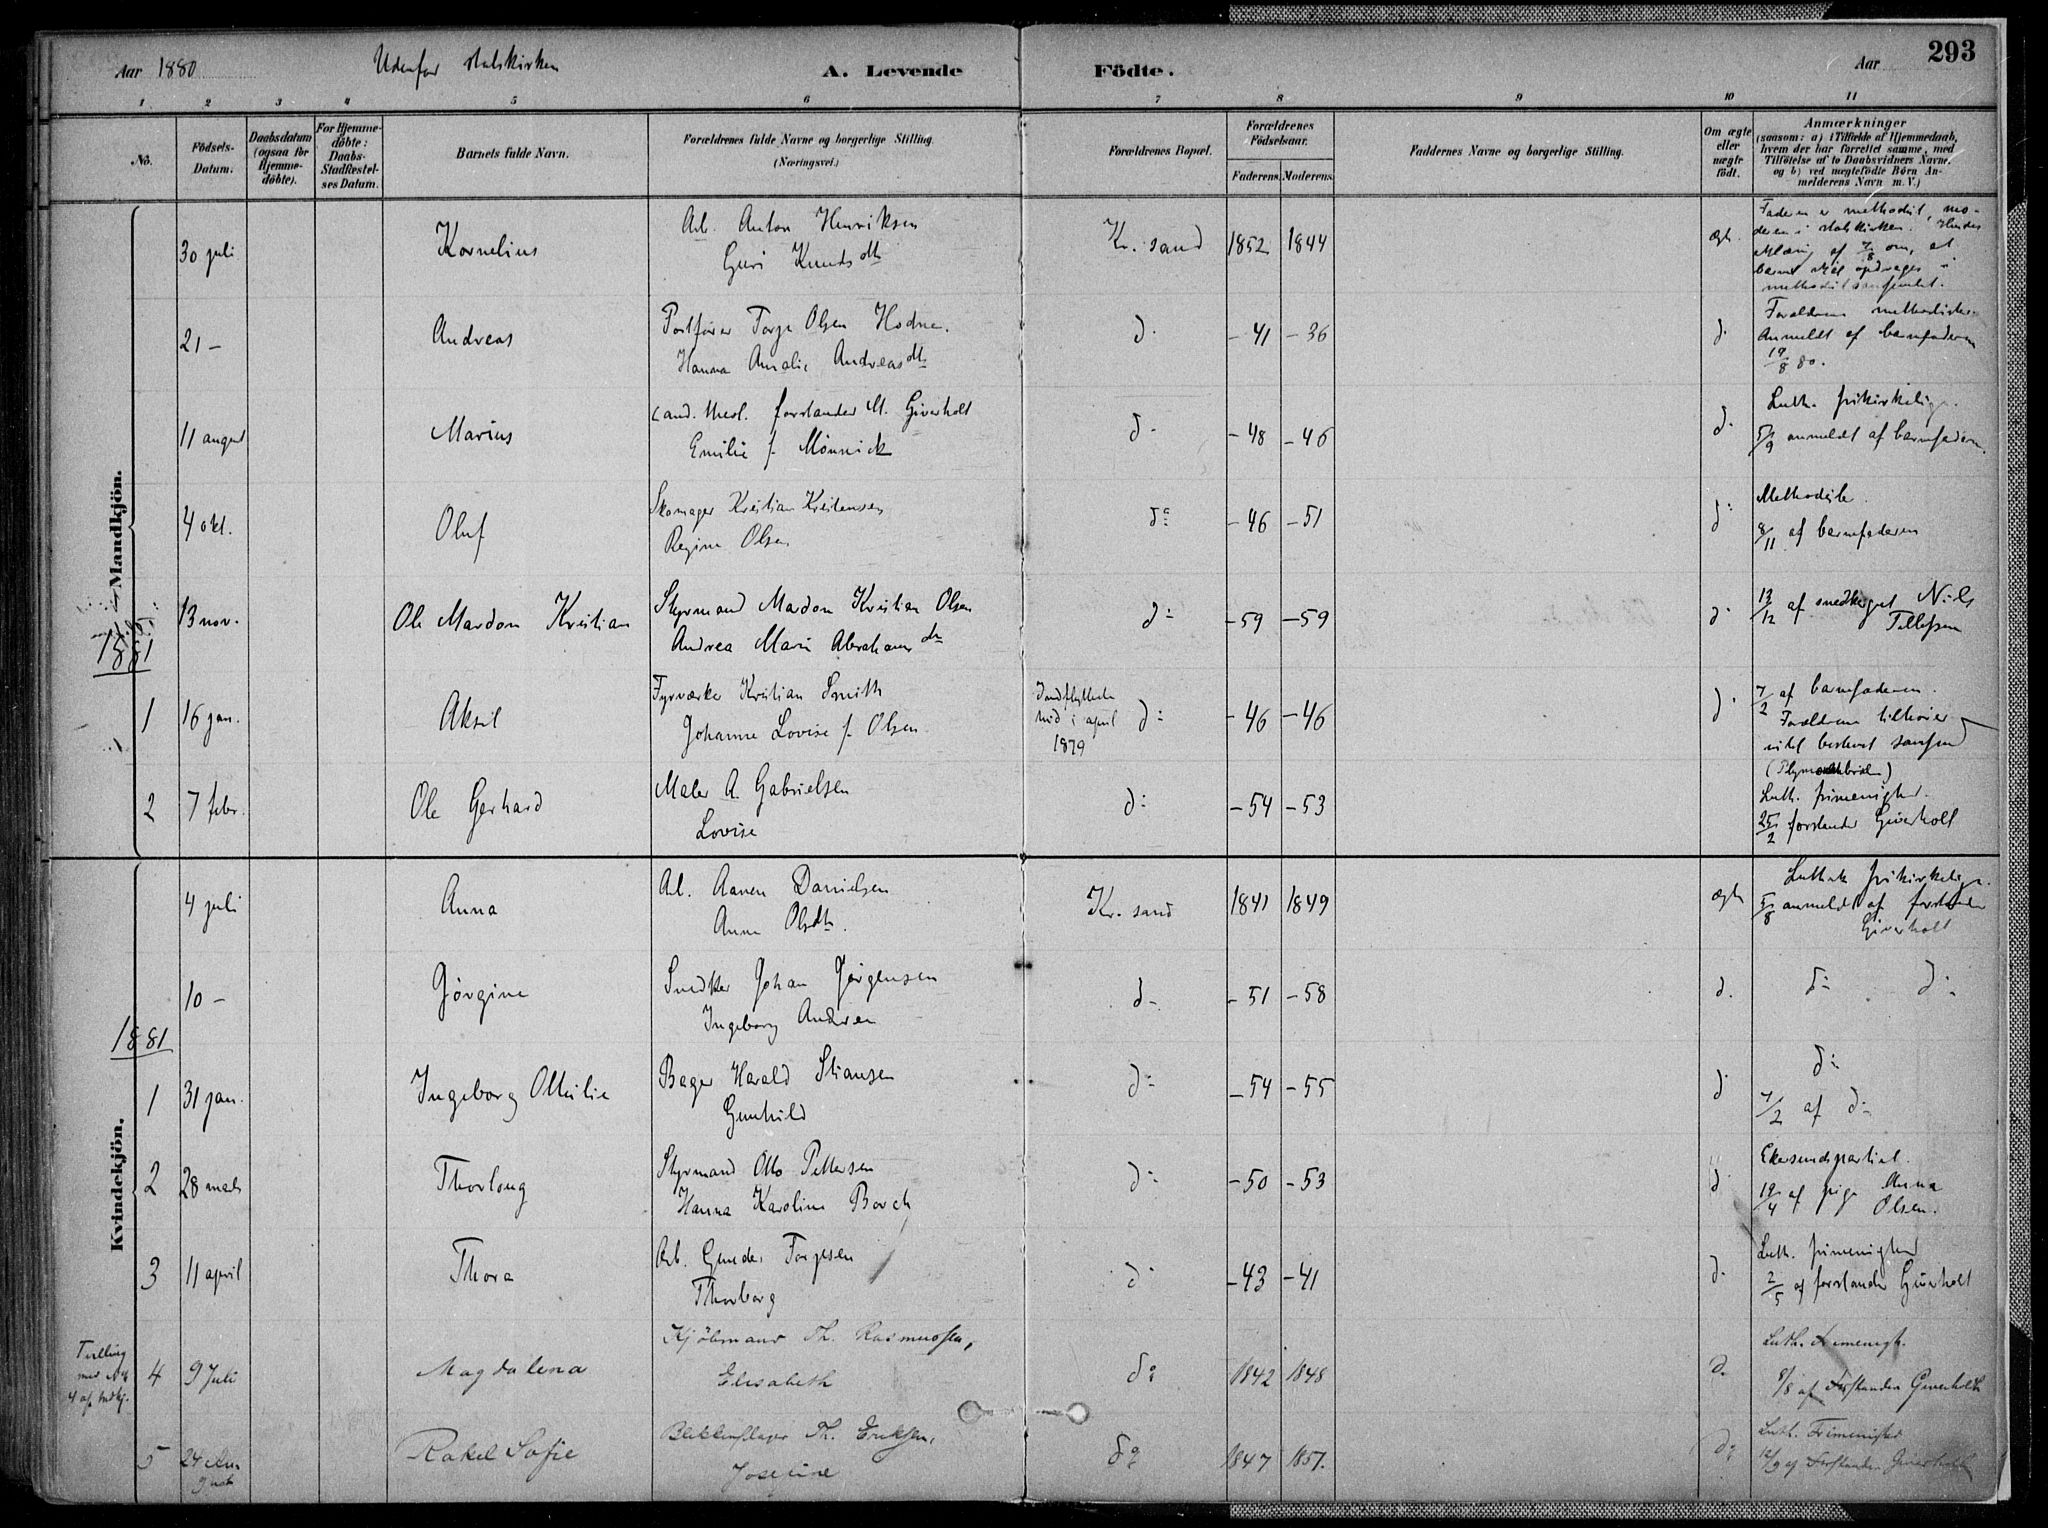 293
Aar 1880 Udenfor statskirken A. Levende Födte. Aar
1 2 3 4 5 6 7 8 9 10 11
No.
Födsels-
Datum.
Daabsdatum
(ogsaa for
Hjemme-
döbte).
For Hjemme-
döbte:
Daabs-
Stadfæstel-
ses Datum.
Barnets fulde Navn.
Forældrenes fulde Navne og borgerlige Stilling
(Næringsvei.)
Forældrenes Bopæl.
Forældrenes
Födselsaar.
Faderens. Moderens.
Faddernes Navne og borgerlige Stilling.
Om ægte
eller
uægte
födt.
Anmærkninger
(saasom: a) i Tilfælde af Hjemmedaab,
hvem der har forrettet samme, med
Tilföielse af to Daabsvidners Navne.
og b) ved uægtefödte Börn An-
melderens Navn m. V.)
Mandkjön.
30 juli Kornelius Arb. Anton Henriksen
Guri Knudsdtr
Kr.sand 1852 1844 ægte
Faderen er methodist, mo-
deren i statskirken. Hendes
erklæring af 7/8 om, at
barnet skal opdrages i
methodistsamfundet.
21 – Andreas Postfører Torje Olsen Hodne.
Hanna Amalie Andreasdtr
d: – 41 – 36 d:
Forældrene methodister.
Anmeldt af barnefaderen
19/8 80.
11 august Marius Cand. theol. forstander M. Giverholt
Emilie f. Mönnick
d: – 48 – 46 d:
Luth. frikirkelige.
5/9 anmeldt af barnefaderen.
4 okt. Oluf Skomager Kristian Kristensen
Regine Olsen
d: – 46 – 51 d:
Methodister.
8/11 af barnefaderen
13 nov. Ole Mardon Kristian Styrmand Mardon Kristian Olsen
Andrea Marie Abrahamsdtr
d: – 59 – 59 d:
13/12 af snedkergut Niels
Tellefsen
1881
1 16 jan. Aksel Fyrværker Kristian Smith
Johanne Lovise f. Olsen
Indflyttede
hid i april
1879
d: – 46 – 46 d:
7/2 af barnefaderen.
Forældrene tilhører
intet bestemt samfund
2 7 febr. Ole Gerhard Maler A. Gabrielsen
Lovise
d: – 54 – 53
Luth. frimenighed.
25/2 forstander Giverholt
Kvindekjön.
4 juli Anna Arb. Aanen Danielsen
Anne Olsdtr.
Kr.sand 1841 1849 ægte
Luthersk frikirkelige.
5/8 anmeldt af forstander
Giverholt
10 – Jörgine Snedker Johan Jørgensen
Ingeborg Andrea
d: – 51 – 58 d. d: d:
1881
1 31 jan. Ingeborg Ottilie Bager Harald Stiansen
Gunhild
d: – 54 – 55 d: d:
7/2 af d:
2 28 marts Thorlong Styrmand Otto Pettersen
Hanna Karoline Borch
d: – 50 – 53 d:
Ekersundspartiet.
19/4 af pige Anna
Olsen.
3 11 april Thora Arb. Gunder Torjesen
Thorborg
d: – 43 – 41 d:
Luth. frimenighed
2/5 af forstander Giverholt
Tvilling
med No
4 af Mdkj.
4 9 Juli Magdalena Kjöbmand Th. Rasmussen,
Elisabeth
do 1842 1848 d.
Luth. Frimenigh.
8/8 af Forstander Giverholt
5 24 Au-
gust
Rakel Sofie Blikkenslager Th. Eriksen,
Josefine
do 1847 1851. do
Luth. Frimenighed
12/9 af Forstander Giverholt